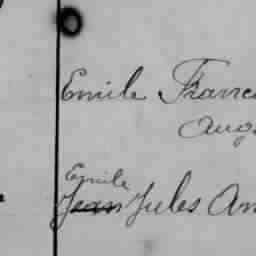 Emile Franc
Aug
Emile
Jean Jules Am